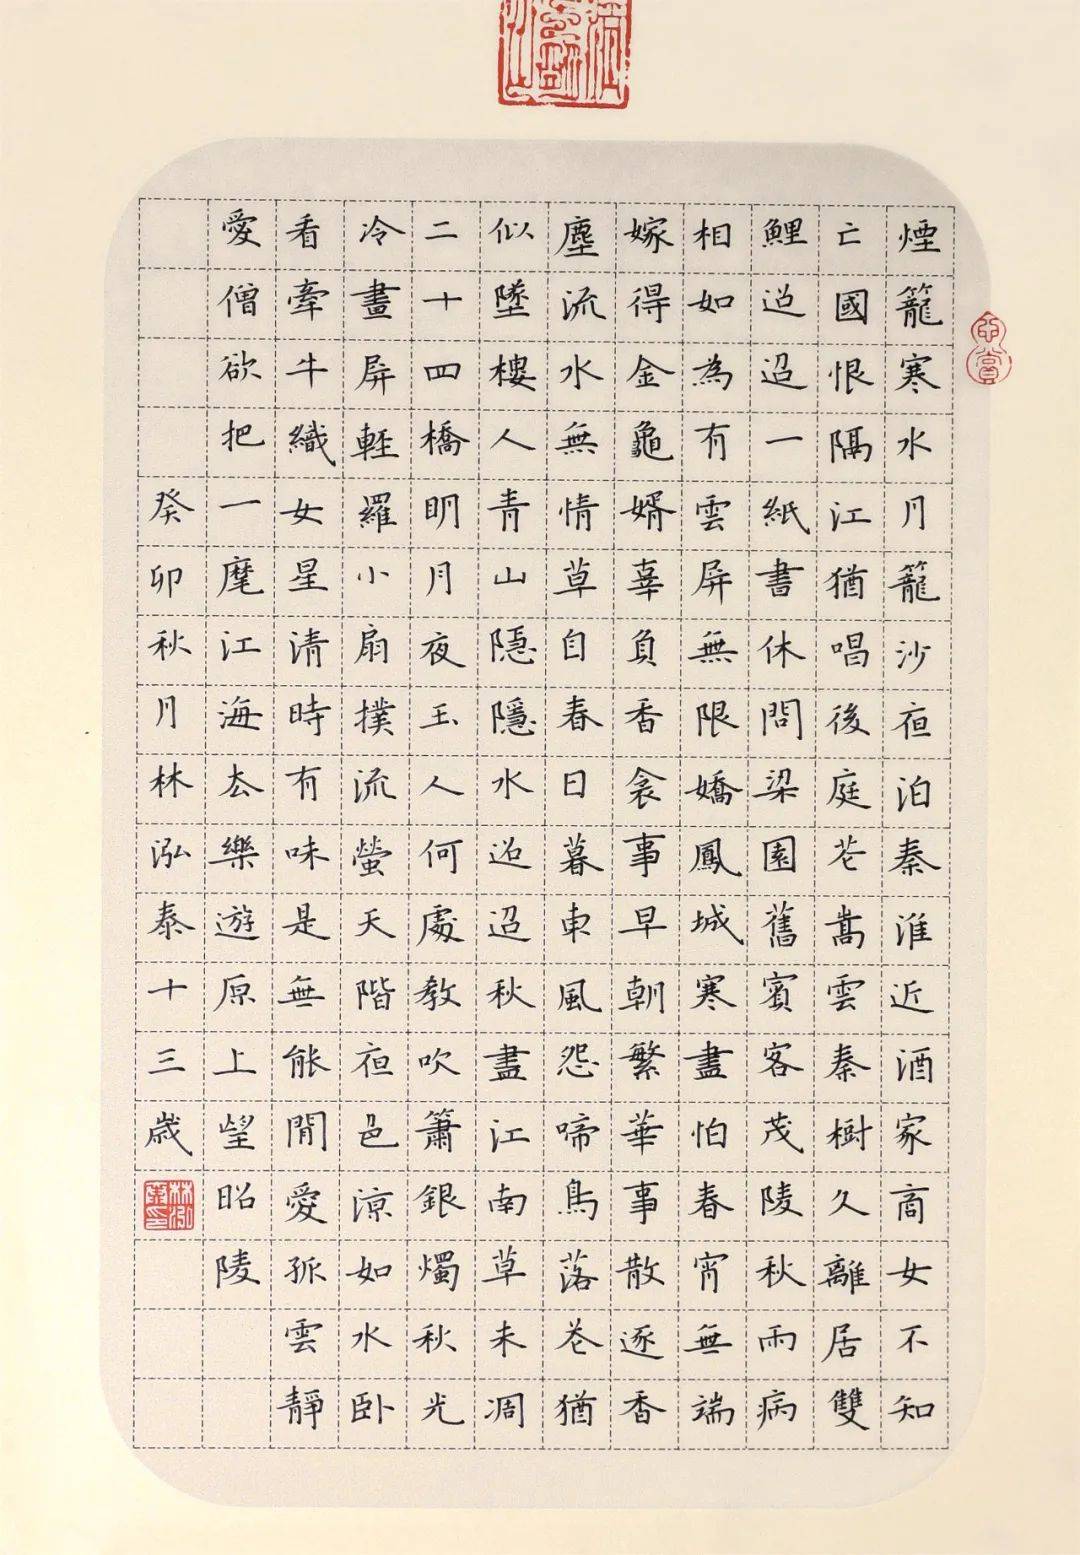 煙籠寒水月籠沙夜泊秦淮近酒家商女不知
亡國恨隔江猶唱後庭花嵩雲秦樹久離居雙
鯉迢迢一紙書休問梁園舊賓客茂陵秋雨病
相如為有雲屏無限嬌鳳城寒盡怕春宵無端
嫁得金龜婿辜負香衾事早朝繁華事散逐香
塵流水無情草自春日暮東風怨啼鳥落花猶
似墜樓人青山隱隱水迢迢秋盡江南草未凋
二十四橋明月夜玉人何處教吹簫銀燭秋光
冷畫屏輕羅小扇撲流螢天階夜色涼如水卧
看牽牛織女星清時有味是無能閒愛孤雲靜
愛僧欲把一麾江海去樂遊原上望昭陵
癸卯秋月林泓泰十三歲
林泓泰印